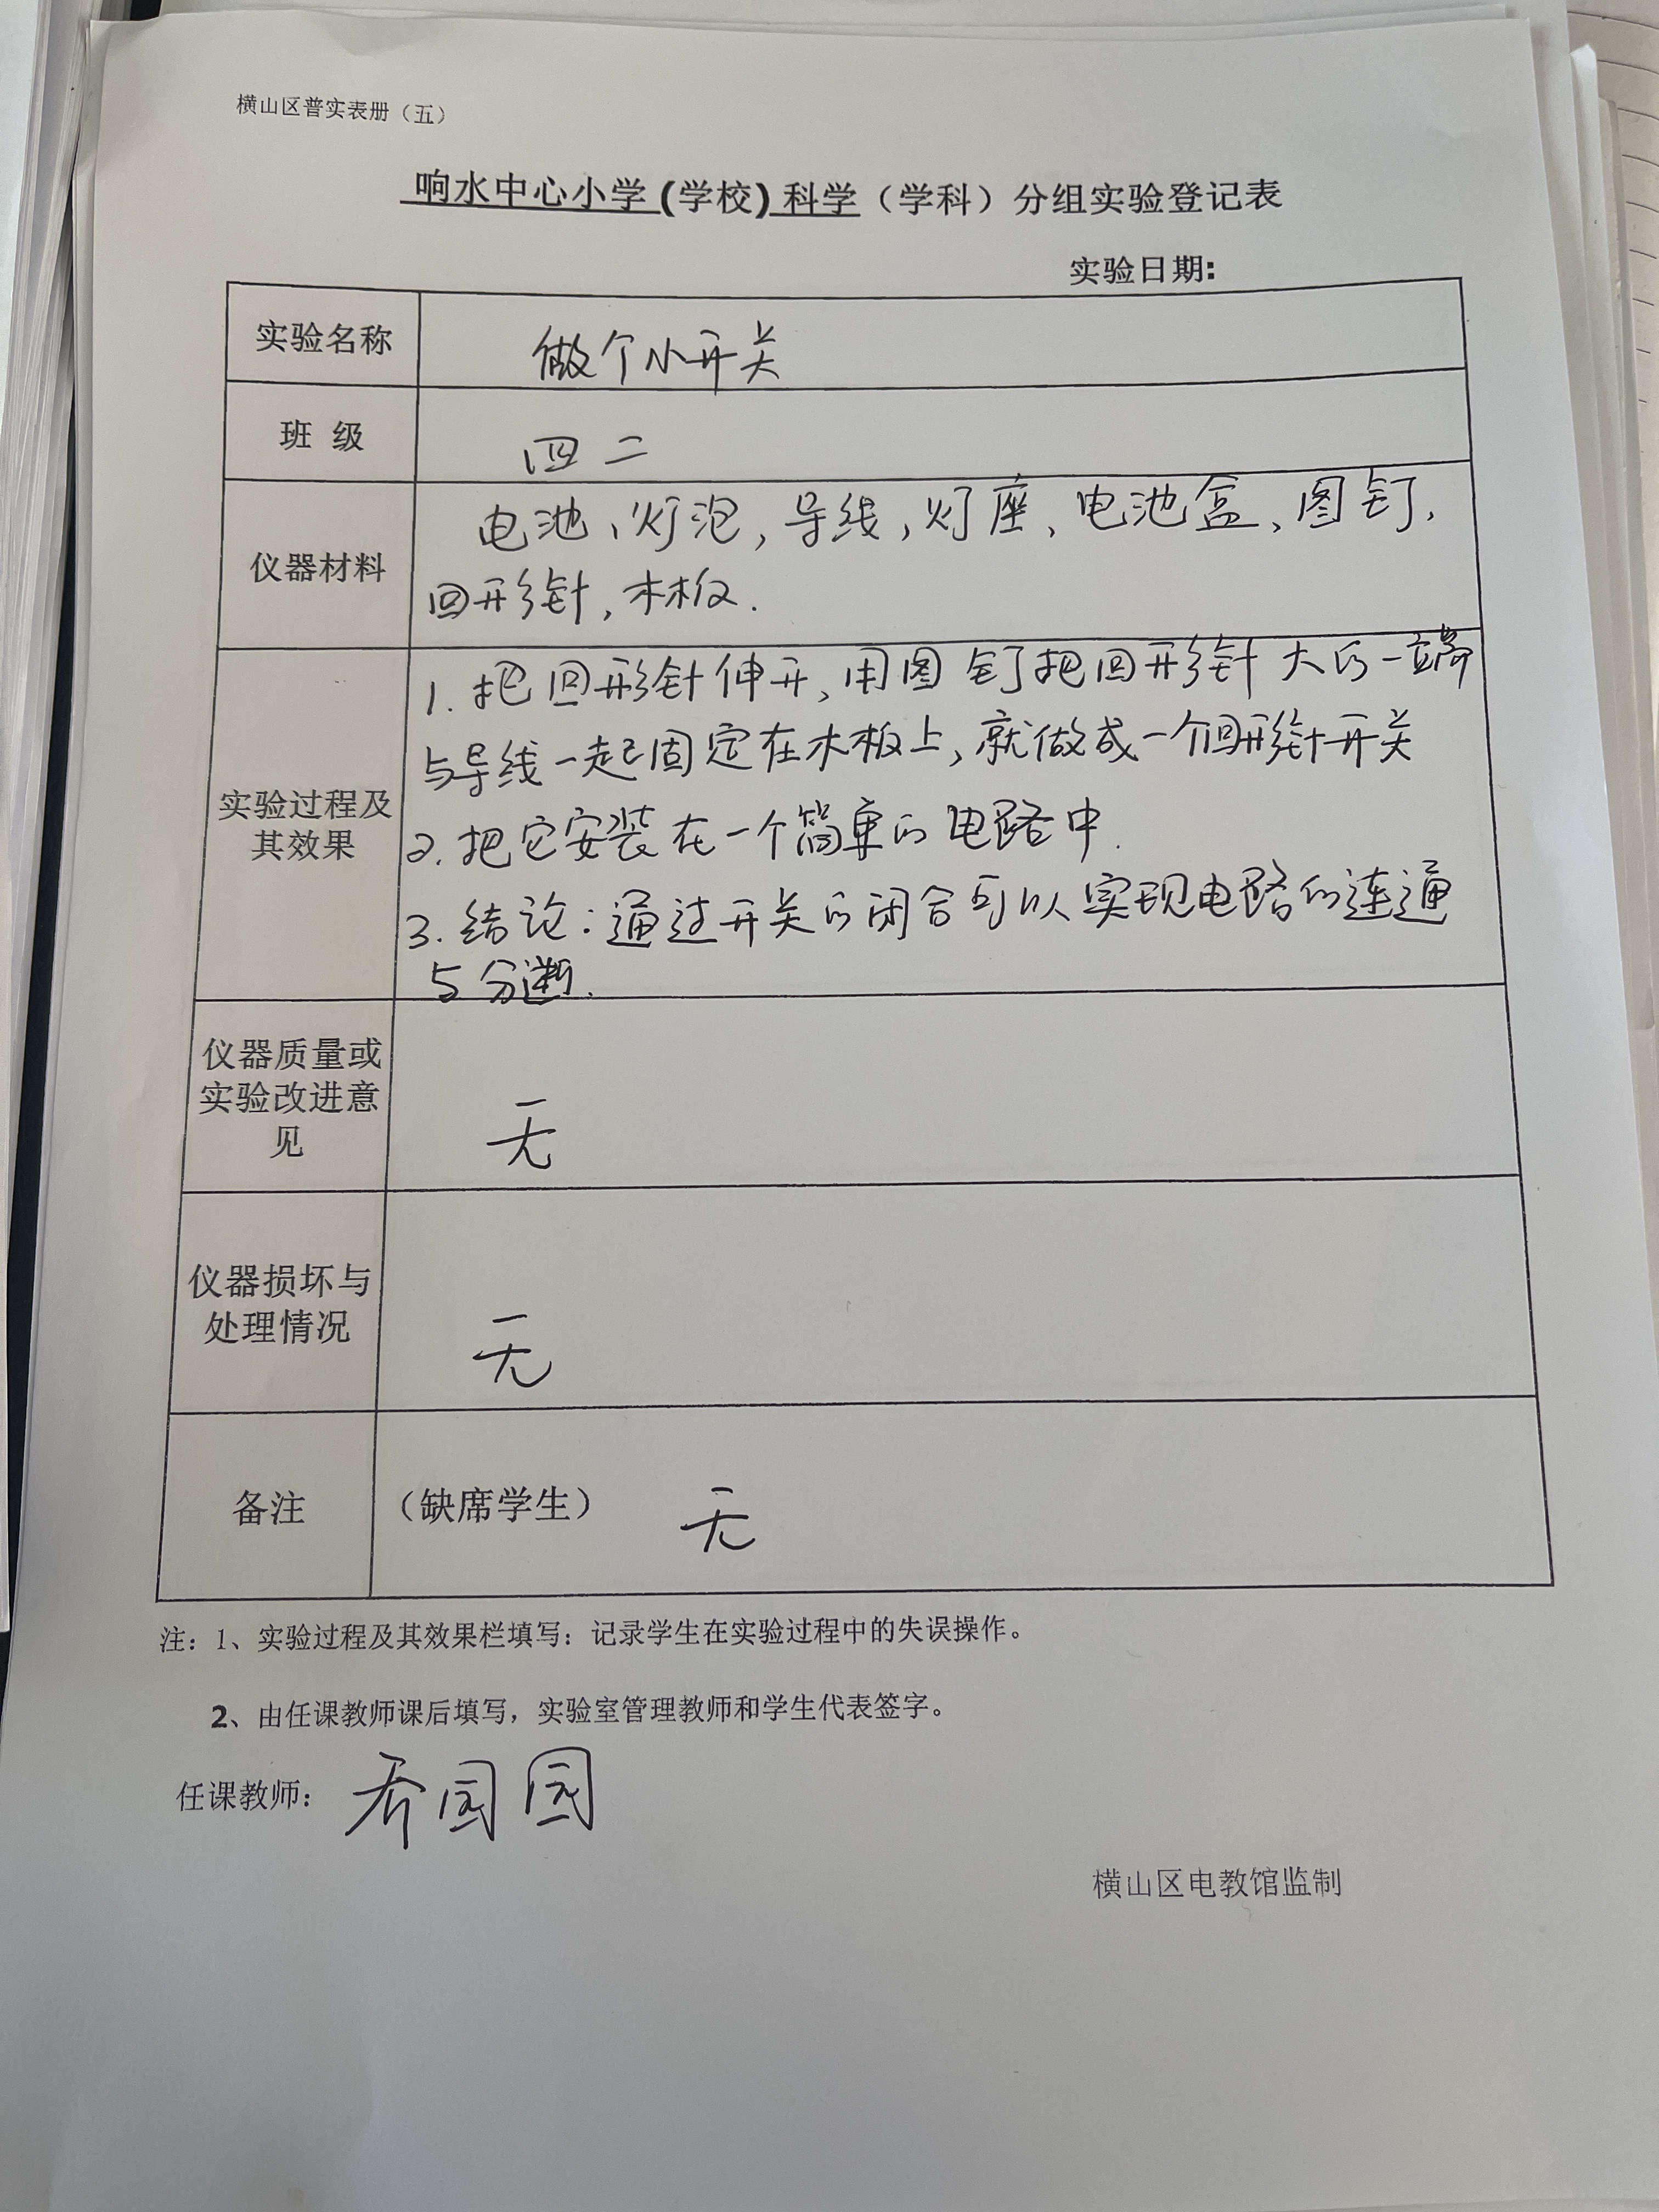 横山区普实表册（五）
响水中心小学(学校) 科学（学科）分组实验登记表
实验日期:
实验名称 做个小开关
班 级 四二
仪器材料 电池、灯泡，导线，灯座、电池盒、图钉，
回形针，木板.
实验过程及其效果 1. 把回形针伸开，用图钉把回形针大的一端
与导线一起固定在木板上，就做成一个回形针开关
2. 把它安装在一个简单的电路中.
3. 结论：通过开关的闭合可以实现电路的连通
与分断.
仪器质量或
实验改进意
见 无
仪器损坏与
处理情况 无
备注 （缺席学生） 无
注：1、实验过程及其效果栏填写：记录学生在实验过程中的失误操作。
2、由任课教师课后填写，实验室管理教师和学生代表签字。
任课教师： 园园
横山区电教馆监制